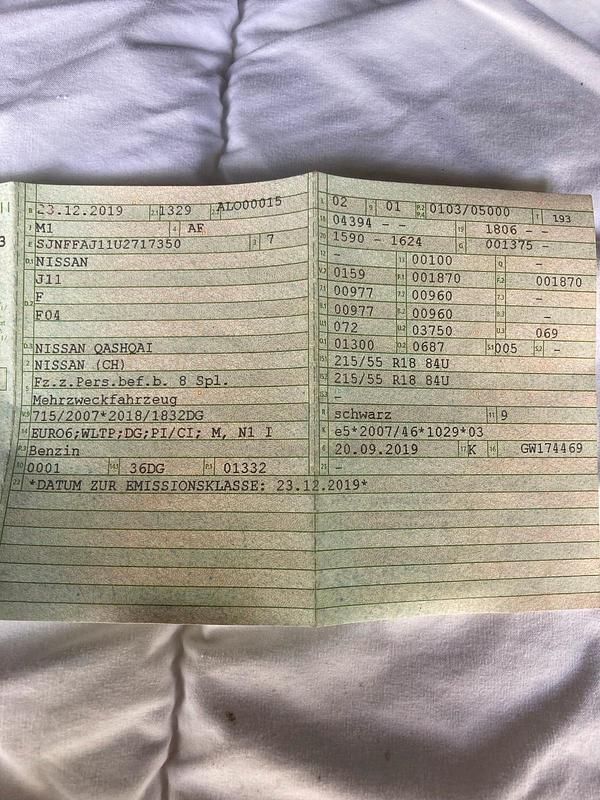 B 23.12.2019 2.1 1329 2.2 ALO00015
J M1 4 AF
E SJNFFAJ11U2717350 3 7
D.1 NISSAN
J11
D.2 F
F04
D.3 NISSAN QASHQAI
2 NISSAN (CH)
5 Fz.z.Pers.bef.b. 8 Spl.
Mehrzweckfahrzeug
V.9 715/2007*2018/1832DG
14 EURO6;WLTP;DG;PI/CI; M, N1 I
P.3 Benzin
10 0001 14.1 36DG P.1 01332
22 *DATUM ZUR EMISSIONSKLASSE: 23.12.2019*
3
02 9 01 P.2 P.4 0103/05000 T 193
18 04394 - - 19 1806 - -
20 1590 - 1624 G 001375 -
12 - 13 00100 Q -
V.7 0159 F.1 001870 F.2 001870
7.1 00977 7.2 00960 7.3 -
8.1 00977 8.2 00960 8.3 -
U.1 072 U.2 03750 U.3 069
O.1 01300 O.2 0687 S.1 005 S.2 -
15.1 215/55 R18 84U
15.2 215/55 R18 84U
15.3 -
R schwarz 11 9
K e5*2007/46*1029*03
6 20.09.2019 17 K 16 GW174469
21 -